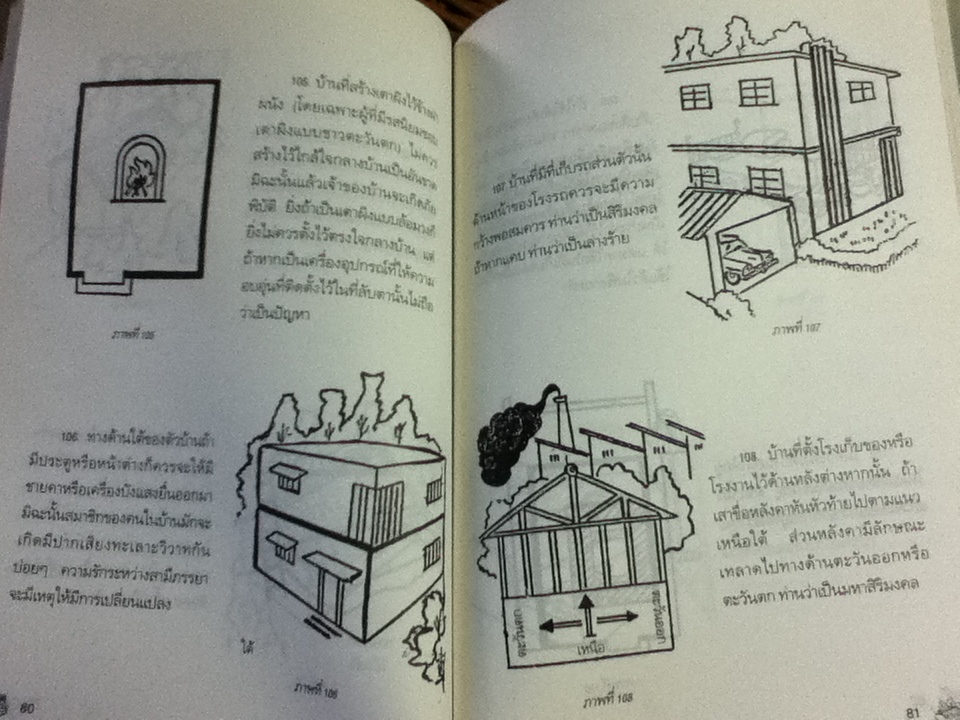 105. บ้านที่สร้างเตาผิงไว้ข้างฝา
ผนัง (โดยเฉพาะผู้ที่มีรสนิยมชอบ
เตาผิงแบบชาวตะวันตก) ไม่ควร
สร้างไว้ใกล้ใจกลางบ้านเป็นอันขาด
มิฉะนั้นแล้วเจ้าของบ้านจะเกิดภัย
พิบัติ ยิ่งถ้าเป็นเตาผิงแบบล้อมวงก็
ยิ่งไม่ควรตั้งไว้ตรงใจกลางบ้าน แต่
ถ้าหากเป็นเครื่องอุปกรณ์ที่ให้ความ
อบอุ่นที่ติดตั้งไว้ในที่ลับตานั้นไม่ถือ
ว่าเป็นปัญหา
ภาพที่ 105
106. ทางด้านใต้ของตัวบ้านถ้า
มีประตูหรือหน้าต่างก็ควรจะให้มี
ชายคาหรือเครื่องบังแสงยื่นออกมา
มิฉะนั้นสมาชิกของคนในบ้านมักจะ
เกิดมีปากเสียงทะเลาะวิวาทกัน
บ่อยๆ ความรักระหว่างสามีภรรยา
จะมีเหตุให้มีการเปลี่ยนแปลง
ใต้
ภาพที่ 106
80
107. บ้านที่มีที่เก็บรถส่วนตัวนั้น
ด้านหน้าของโรงรถควรจะมีความ
กว้างพอสมควร ท่านว่าเป็นสิริมงคล
ถ้าหากแคบ ท่านว่าเป็นลางร้าย
ภาพที่ 107
108. บ้านที่ตั้งโรงเก็บของหรือ
โรงงานไว้ด้านหลังต่างหากนั้น ถ้า
เสาชื่อหลังคาหันหัวท้ายไปตามแนว
เหนือใต้ ส่วนหลังคามีลักษณะ
เทลาดไปทางด้านตะวันออกหรือ
ตะวันตก ท่านว่าเป็นมหาสิริมงคล
ตะวันตก
เหนือ
ตะวันออก
ภาพที่ 108
81